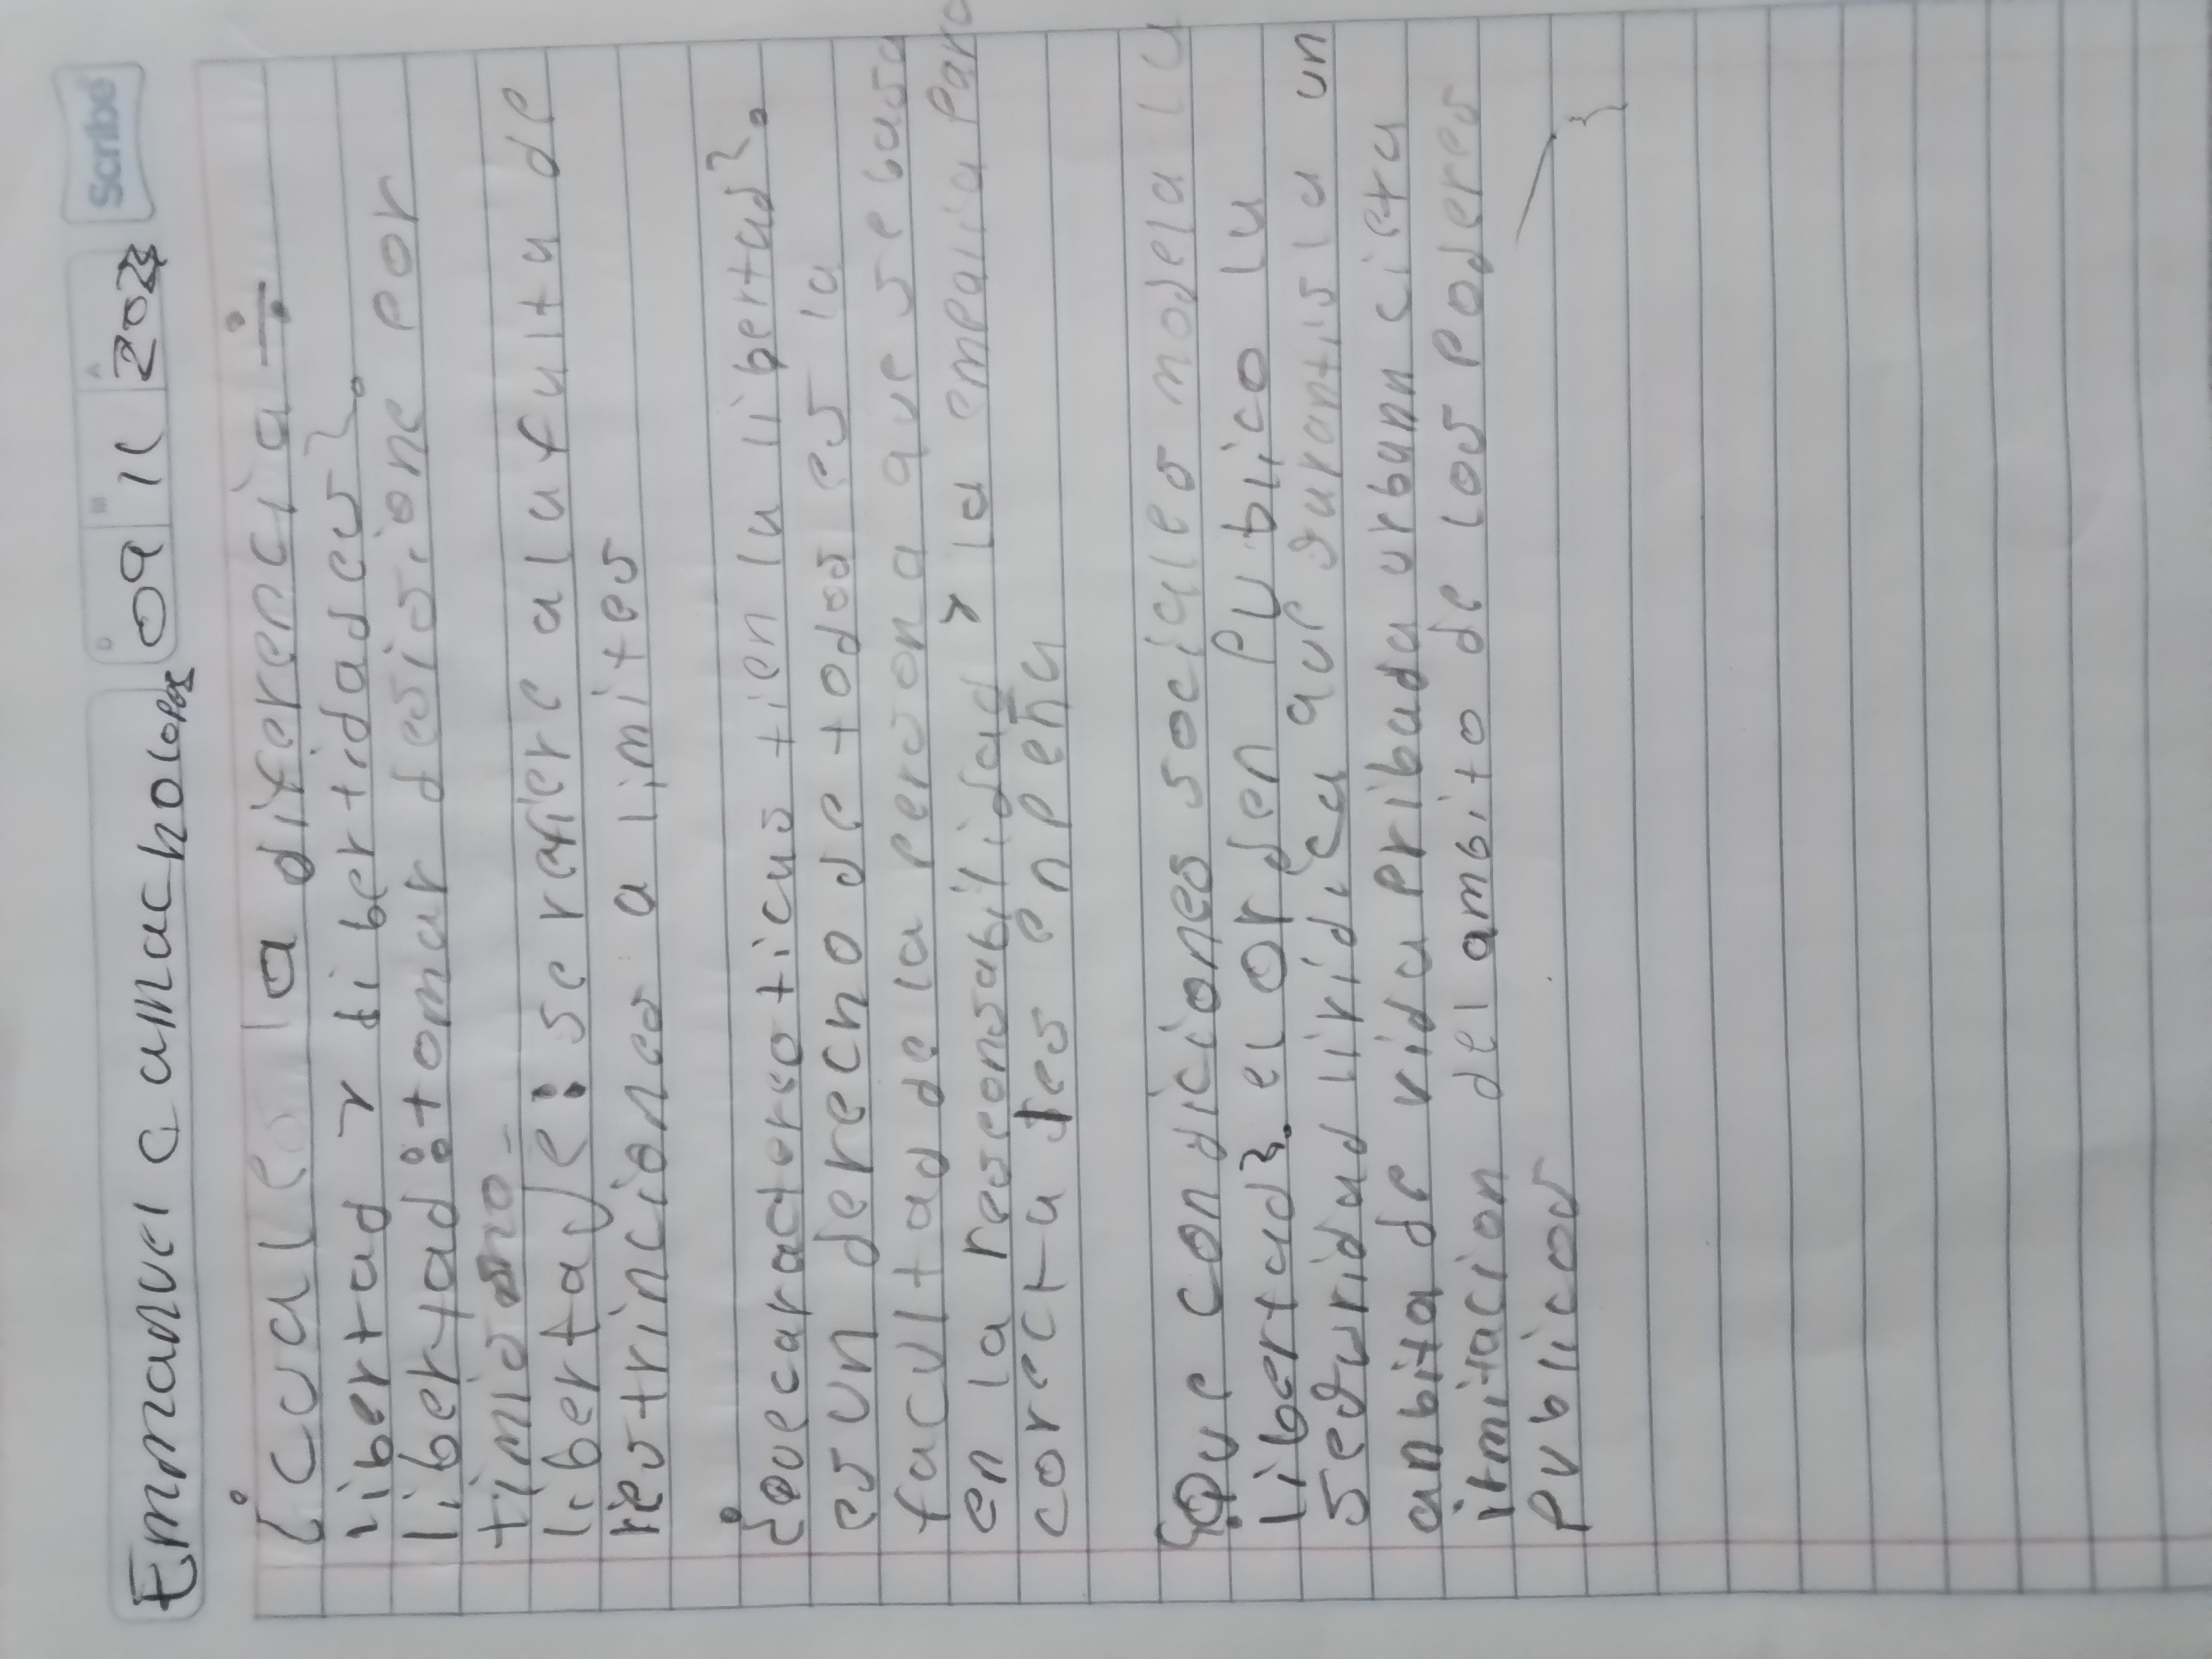 Emmanuel camacho Lopez D 09 M 11 A 2023 Scribe
¿cual es la diferencia ÷
libertad y libertidades?.
libertad: tomar desisione por
timismo-
libertaje: se refiere a la fulta de
restrinciones a limites
¿Que caracterisoticas tien la libertad?.
es un derecho de todos es la
facultad de la persona que se basa
en la responsabilidad y la empatia para
corecta des enpeña
¿Que condiciones sociales modela la
libertad?. el orden Publico la
seguridad liridica que garantisla un
anbita de vida pribada urbann cieta
itmitacion del ambito de los Poderes
Publicos